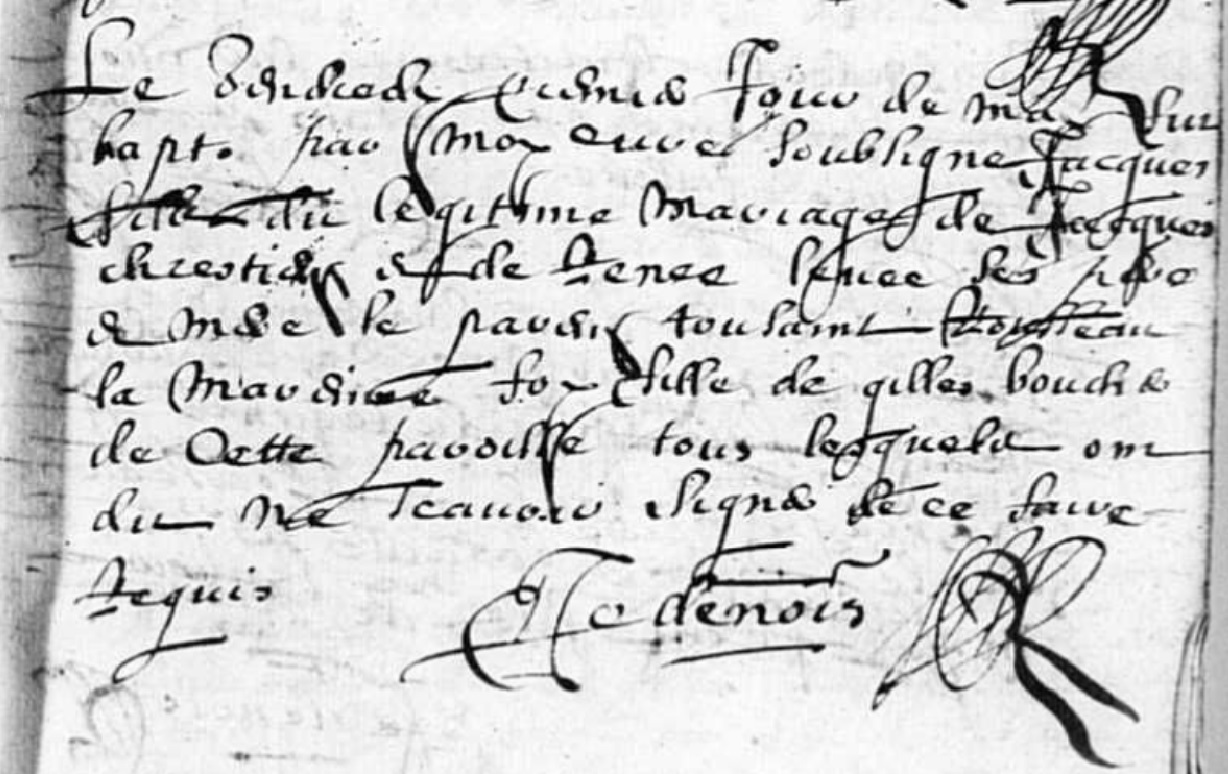 Le vendredi premier Jour de may fut
bapt. par moy curé soubsigne Jacques
fils du legitime mariage de Jacques
chrestien et de Renee ses pere
et mere le parein tousaint
la mareine foy fille de gilles boucher
de Cette paroisse tous lesquels ont
dit ne scavoir signer de ce faire
Requis denois